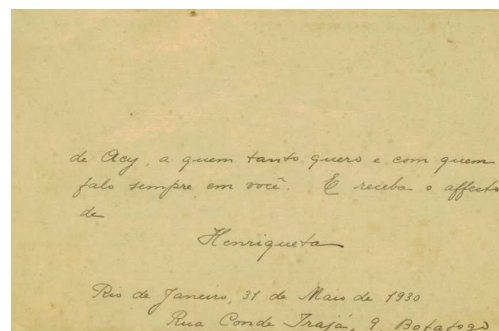 de Acy, a quem tanto quero e com quem
falo sempre em você. E receba o affecto
de
Henriqueta
Rio de Janeiro, 31 de Maio de 1930
Rua Conde Irajá, 9. Botafogo